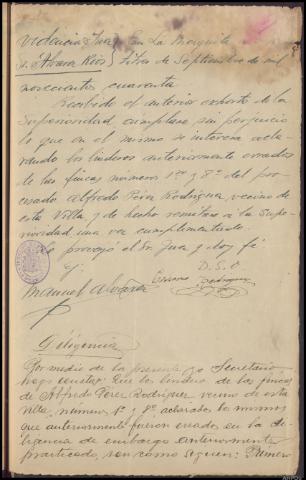 Providencia Juez En La Mezquita
Sr. Alvarez Ríos} Ribes de Septiembre de mil
novecientos cuarenta
Recibido el anterior exhorto de la
Superioridad cumplase sin perjuicio
lo que en el mismo se interesa acla-
rando los linderos anteriormente errados
de las fincas números 1ª y 8ª del pro-
cesado Alfredo Pérez Rodríguez vecino de
esta Villa, y de hecho remítase a la Supe-
rioridad una vez cumplimentado.
Lo proveyó el Sr. Juez y doy fé
D. S. O
Manuel Alvarez Rodriguez
Diligencia
Por medio de la presente yo Secretario
hago constar: Que los linderos de las fincas
de Alfredo Pérez Rodríguez vecino de esta
villa, números 1ª y 8ª aclarados los mismos
que anteriormente fueron errados en la di-
ligencia de embargo anteriormente
practicado, son como siguen: Primero